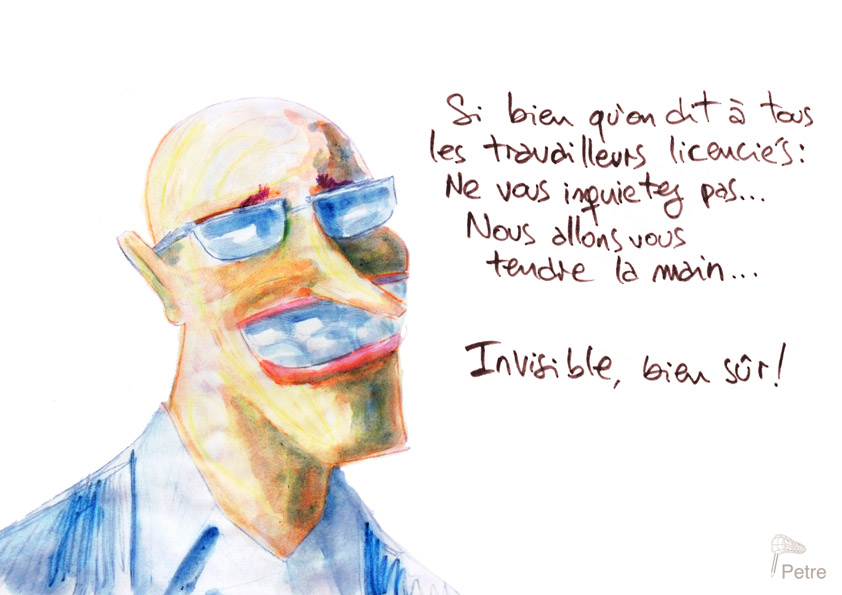 Si bien qu'on dit à tous
les travailleurs licenciés:
Ne vous inquietez pas...
Nous allons vous
tendre la main...
Invisible, bien sûr!
Petre